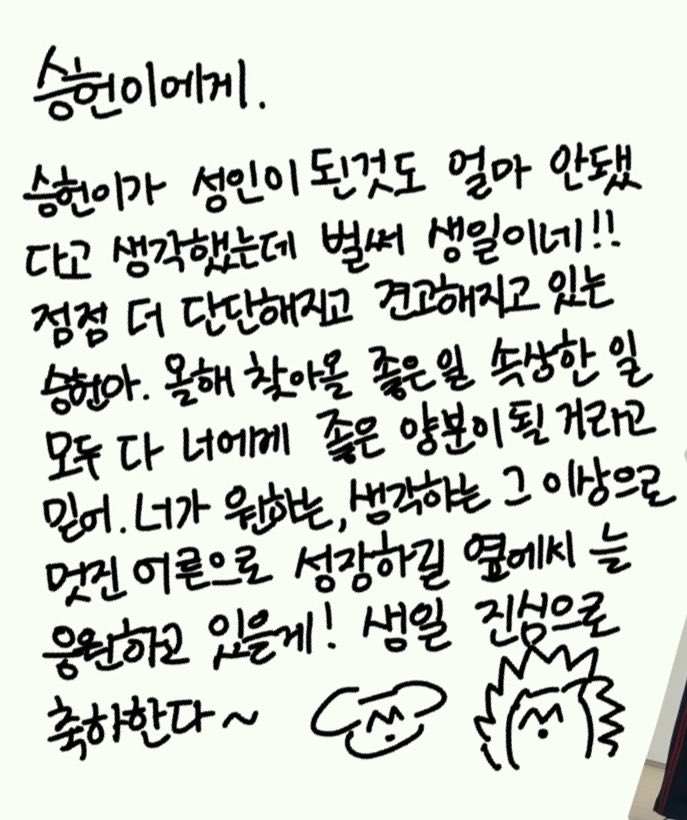 승헌이에게.
승헌이가 성인이 된것도 얼마 안됐
다고 생각했는데 벌써 생일이네!!
점점 더 단단해지고 견고해지고 있는
승헌아. 올해 찾아올 좋은일 속상한 일
모두 다 너에게 좋은 양분이 될 거라고
믿어. 너가 원하는, 생각하는 그 이상으로
멋진 어른으로 성장하길 옆에서 늘
응원하고 있을게! 생일 진심으로
축하한다~